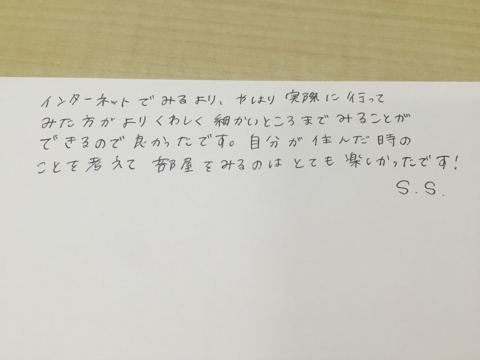 インターネットでみるより、やはり実際に行って
みた方がよりくわしく細かいところまでみることが
できるので良かったです。自分が住んだ時の
ことを考えて部屋をみるのはとても楽しかったです!
S.S.